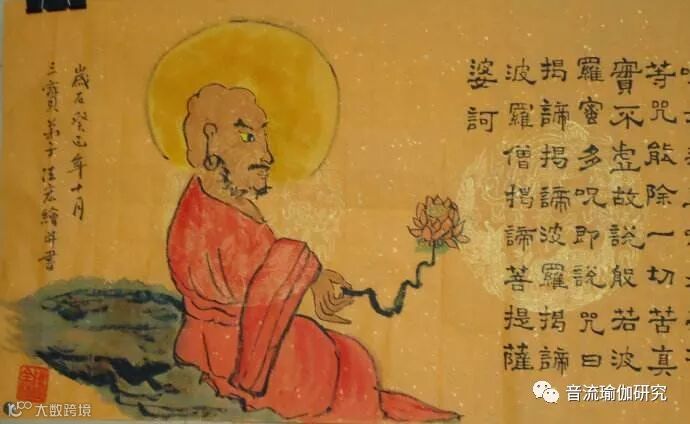 等咒能除一切苦真
實不虛故說般若波
羅蜜多呪即說咒曰
揭諦揭諦波羅揭諦
波羅僧揭諦菩提薩
婆訶
歲在癸巳年十月
三寶弟子法宏繪并書
大数跨境
音流瑜伽研究